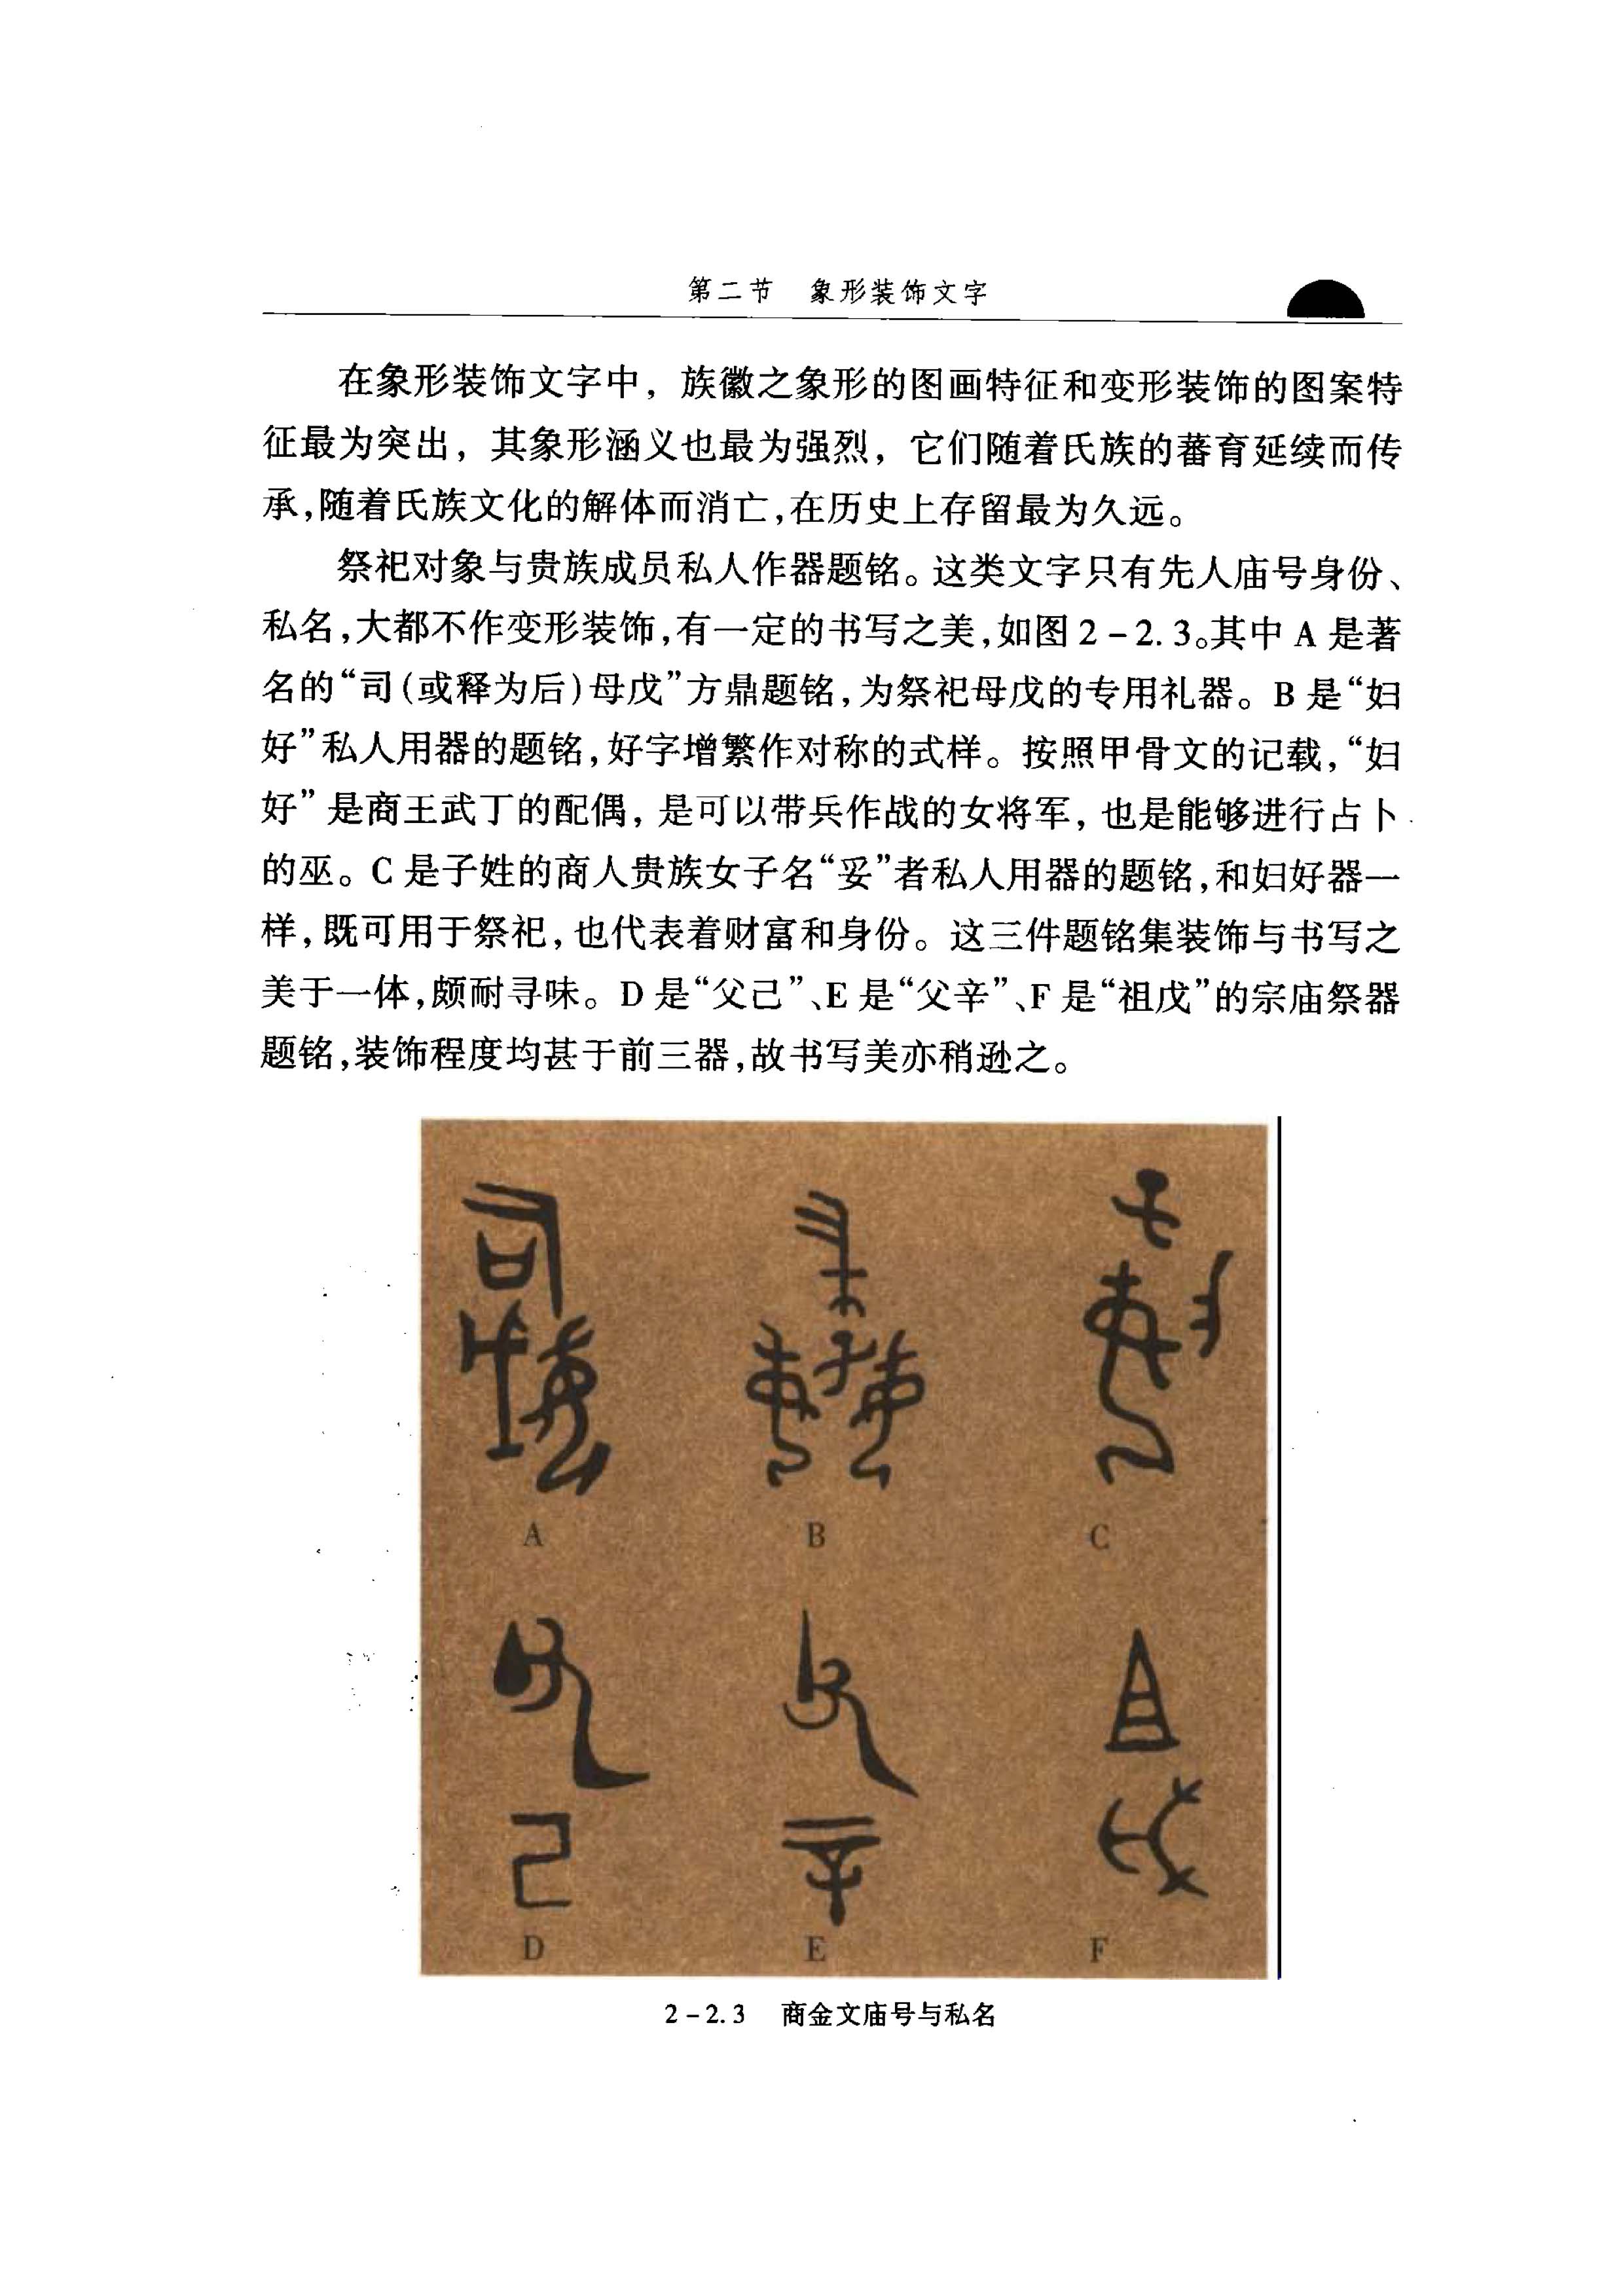 第二节 象形装饰文字
在象形装饰文字中，族徽之象形的图画特征和变形装饰的图案特
征最为突出，其象形涵义也最为强烈，它们随着氏族的蕃育延续而传
承，随着氏族文化的解体而消亡，在历史上存留最为久远。
祭祀对象与贵族成员私人作器题铭。这类文字只有先人庙号身份、
私名，大都不作变形装饰，有一定的书写之美，如图2－2.3。其中 A 是著
名的“司(或释为后)母戊”方鼎题铭，为祭祀母戊的专用礼器。B 是“妇
好”私人用器的题铭，好字增繁作对称的式样。按照甲骨文的记载，“妇
好”是商王武丁的配偶，是可以带兵作战的女将军，也是能够进行占卜
的巫。C 是子姓的商人贵族女子名“妥”者私人用器的题铭，和妇好器一
样，既可用于祭祀，也代表着财富和身份。这三件题铭集装饰与书写之
美于一体，颇耐寻味。D 是“父己”、E 是“父辛”、F 是“祖戊”的宗庙祭器
题铭，装饰程度均甚于前三器，故书写美亦稍逊之。
司母戊
妇好
子妥
A B C
父己
父辛
祖戊
D E F
2－2.3 商金文庙号与私名